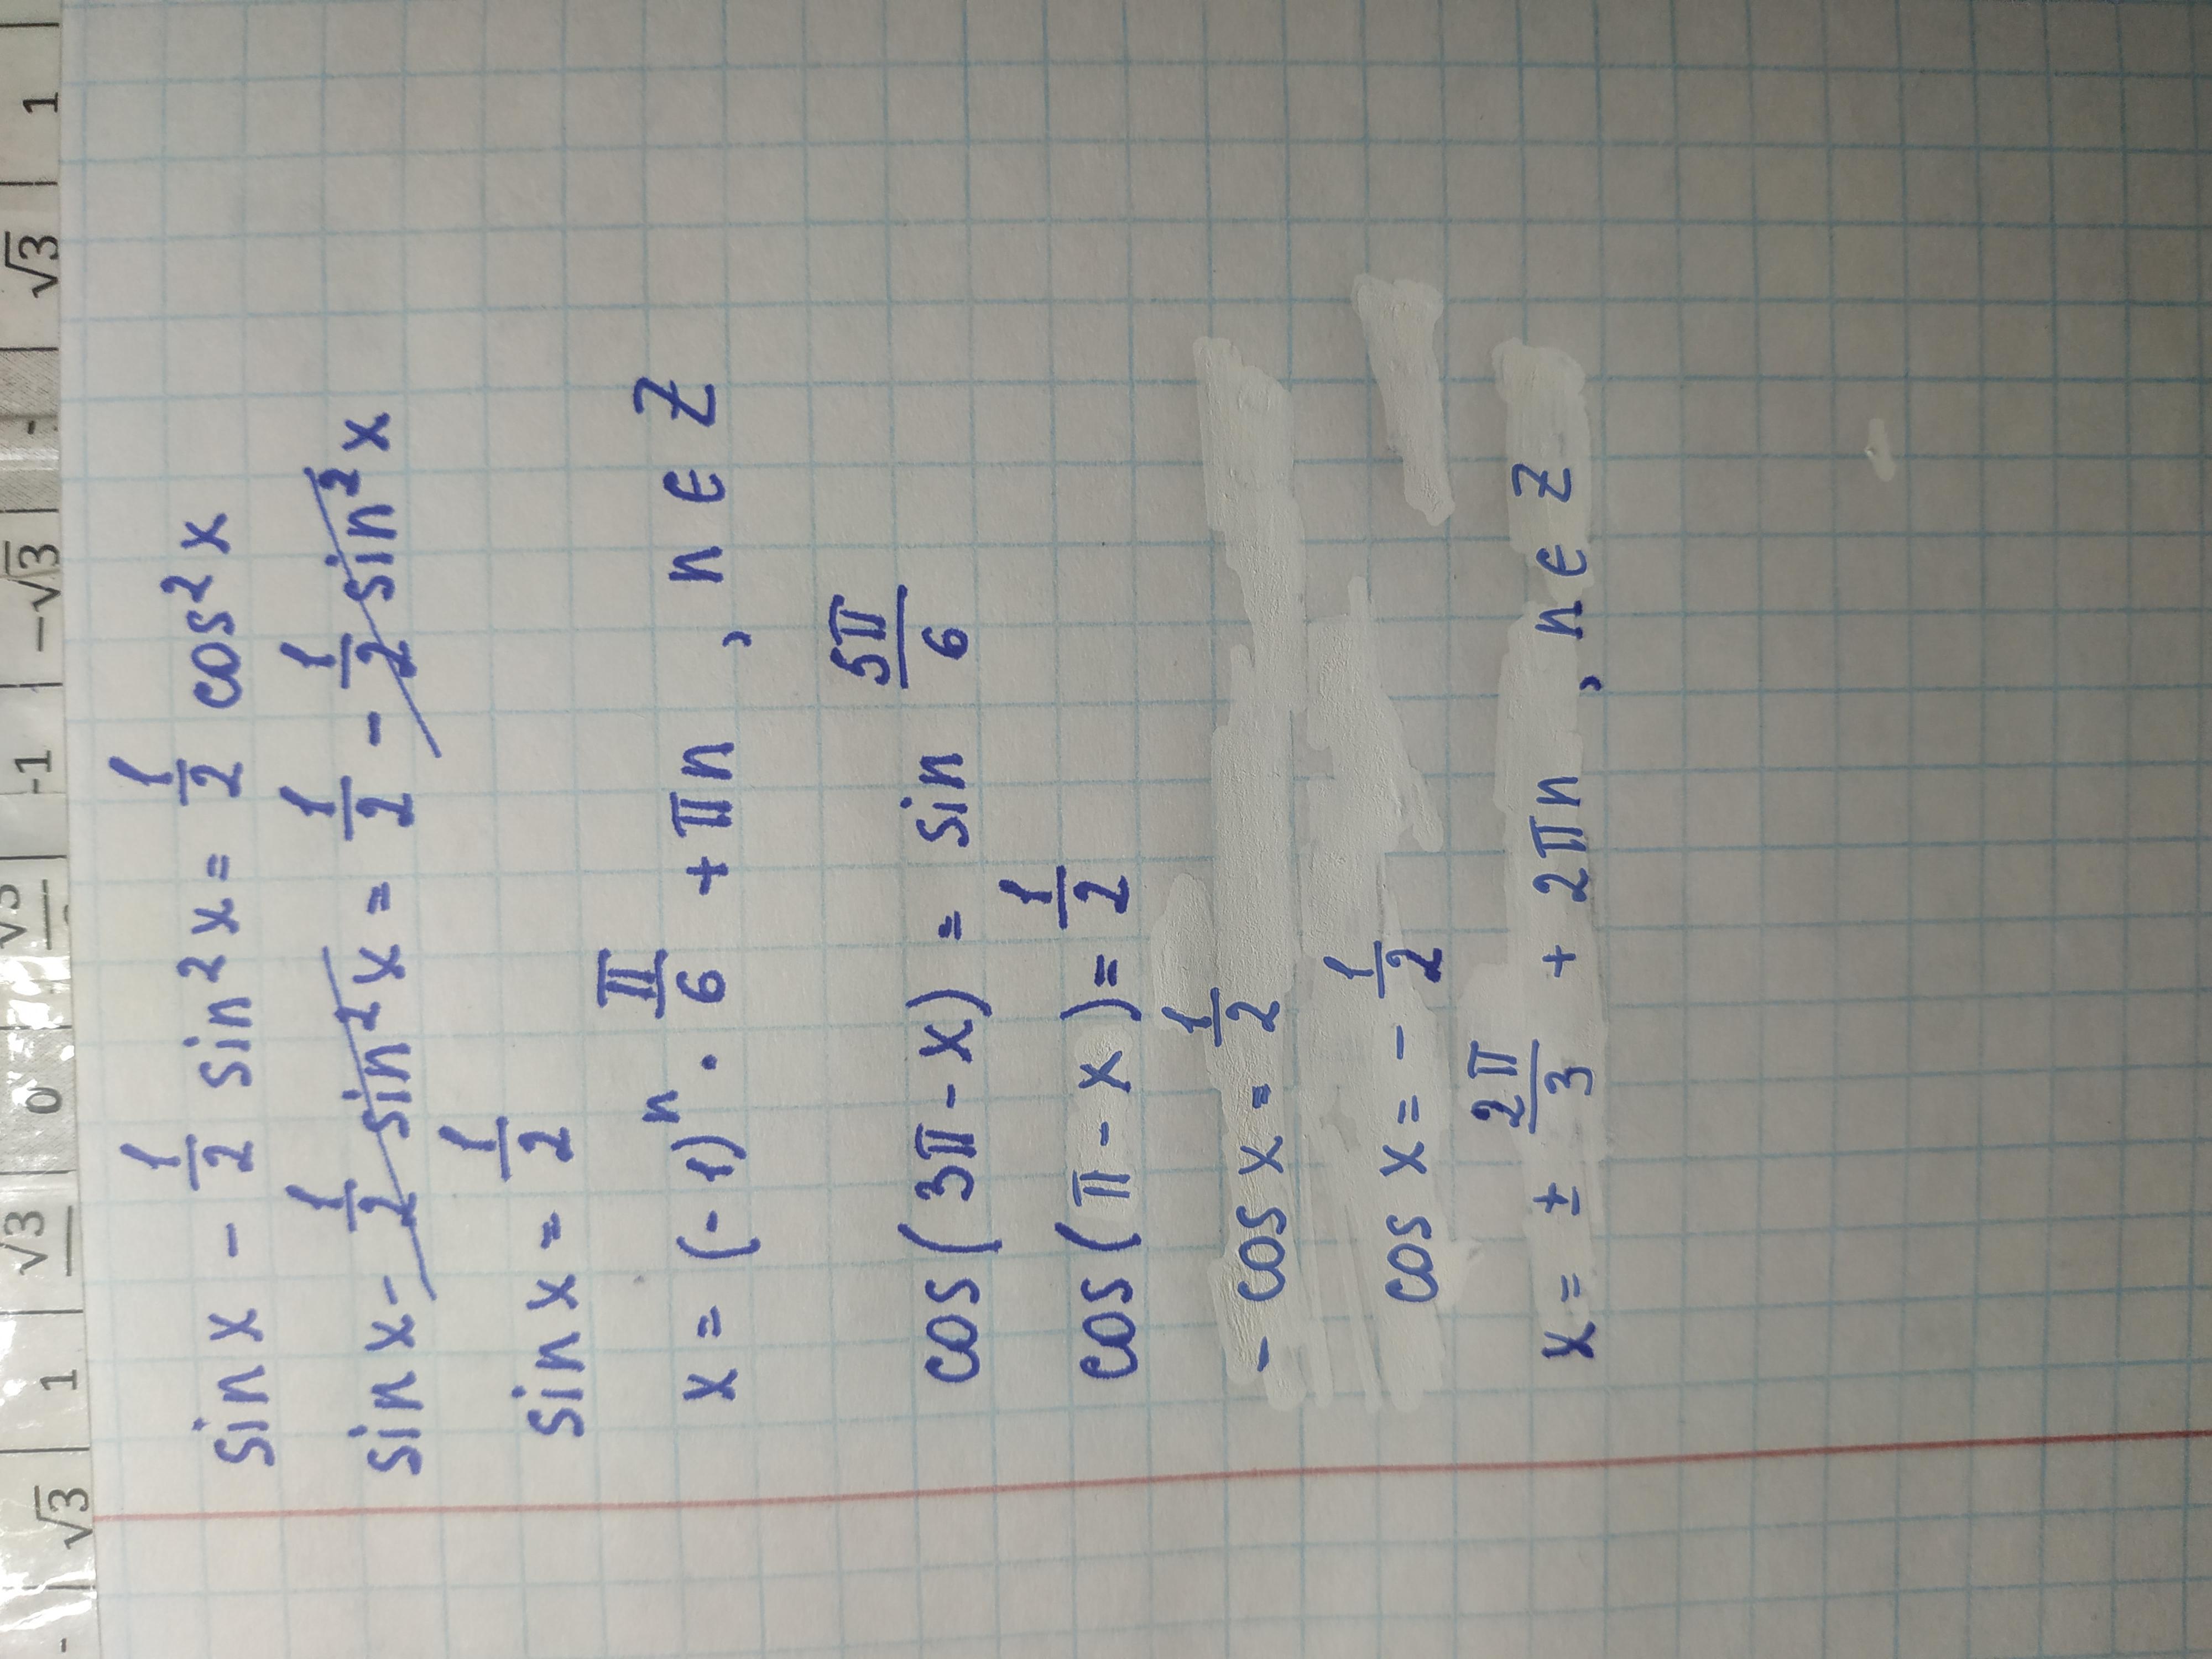 - √3 1 √3 0 √3 -1 -√3 - √3 1
sin x - 1/2 sin² x = 1/2 cos² x
sin x - 1/2 sin² x = 1/2 - 1/2 sin² x
sin x = 1/2
x = (-1)ⁿ · π/6 + πn , n ∈ Z
cos (3π - x) = sin 5π/6
cos (π - x) = 1/2
- cos x = 1/2
cos x = - 1/2
x = ± 2π/3 + 2πn , n ∈ Z